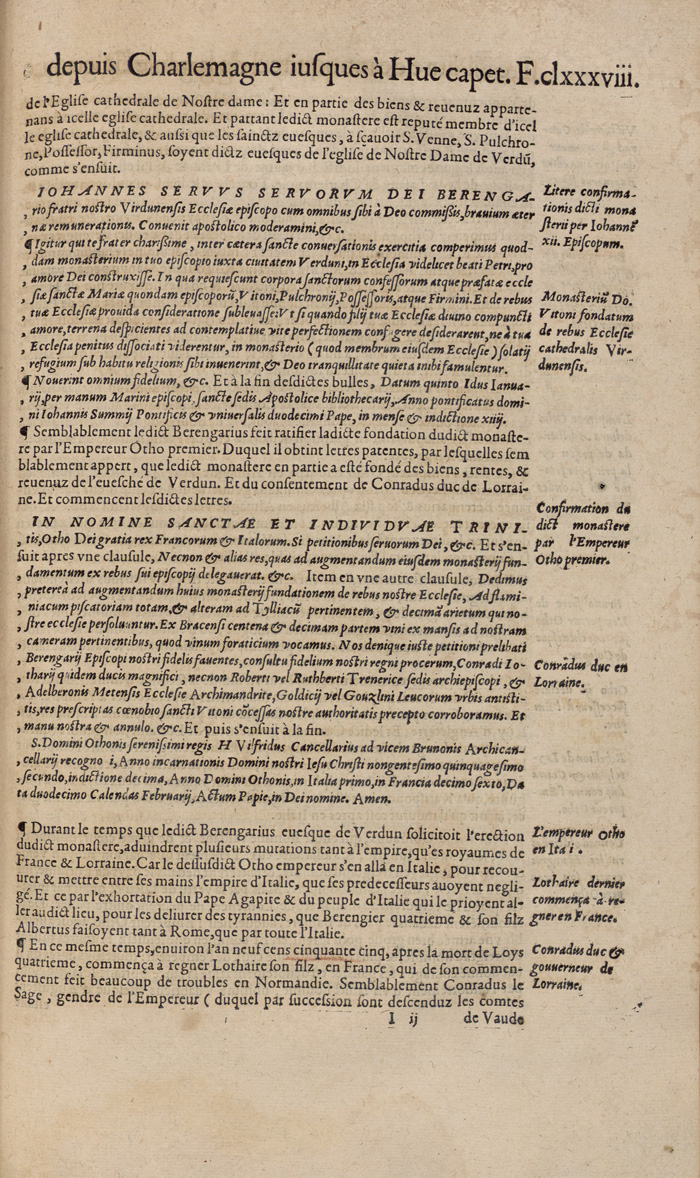 depuis Charlemagne iuſques à Hue capet. F.clxxxviii.
de l'Egliſe cathedrale de Noſtre dame: Et en partie des biens & reuenuz apparte-
nans à icelle egliſe cathedrale. Et partant ledict monaſtere eſt reputé membre d'icel
le egliſe cathedrale, & auſsi que les ſainctz eueſques, à ſçauoir S. Venne, S. Pulchro-
ne, Poſſeſſor, Firminus, ſoyent dictz eueſques de l'egliſe de Noſtre Dame de Verdū,
comme s'enſuit.
IOHANNES SERVVS SERVORVM DEI BERENGA-
, rio fratri noſtro Virdunenſis Eccleſiæ epiſcopo cum omnibus ſibi à Deo commiſsis, brauium æter
, næ remunerationis. Conuenit apoſtolico moderamini, &c.
¶ Igitur qui te frater chariſsime, inter cætera ſancte conuerſationis exercitia comperimus quod-
, dam monaſterium in tuo epiſcopio iuxta ciuitatem Verduni, in Eccleſia videlicet beati Petri, pro
, amore Dei conſtruxiſſe. In qua requieſcunt corpora ſanctorum confeſſorum atque præfatæ eccle
, ſiæ ſanctæ Mariæ quondam epiſcoporū, Vitoni, Pulchronij, Poſſeſſoris, atque Firmini. Et de rebus
, tuæ Eccleſiæ prouida conſideratione ſubleuaſſe: Vt ſi quando filij tuæ Eccleſiæ diuino compuncti
, amore, terrena deſpicientes ad contemplatiue vite perfectionem confugere deſiderarent, ne à tua
, Eccleſia penitus diſſociati viderentur, in monaſterio ( quod membrum eiuſdem Eccleſie ) ſolatij
, refugium ſub habitu religionis ſibi inuenerint, & Deo tranquillitate quieta inibi famulentur.
¶ Nouerint omnium fidelium, &c. Et à la fin deſdictes bulles, Datum quinto Idus Ianua-
, rij, per manum Marini epiſcopi, ſancte ſedis Apoſtolice bibliothecarij, Anno pontificatus domi-
, ni Iohannis Summij Pontificis & vniuerſalis duodecimi Pape, in menſe & indictione xiiij.
¶ Semblablement ledict Berengarius feit ratifier ladicte fondation dudict monaſte-
re par l'Empereur Otho premier. Duquel il obtint letres patentes, par leſquelles ſem
blablement appert, que ledict monaſtere en partie a eſté fondé des biens, rentes, &
reuenuz de l'eueſché de Verdun. Et du conſentement de Conradus duc de Lorrai-
ne. Et commencent leſdictes letres.
IN NOMINE SANCTAE ET INDIVIDVAE TRINI-
, tis, Otho Dei gratia rex Francorum & Italorum. Si petitionibus ſeruorum Dei, &c. Et s'en-
ſuit apres vne clauſule, Necnon & alias res, quas ad augmentandum eiuſdem monaſterij fun-
, damentum ex rebus ſui epiſcopij delegauerat. &c. Item en vne autre clauſule, Dedimus
, pretereà ad augmentandum huius monaſterij fundationem de rebus noſtre Eccleſie, Ad flami-
, niacum piſcatoriam totam, & alteram ad Tylliacū pertinentem, & decimā arietum qui no-
, ſtre eccleſie perſoluuntur. Ex Bracenſi centena & decimam partem vini ex manſis ad noſtram
, cameram pertinentibus, quod vinum foraticium vocamus. Nos denique iuſte petitioni prelibati
, Berengarij Epiſcopi noſtri fidelis fauentes, conſultu fidelium noſtri regni procerum, Conradi Lo-
, tharij quidem ducis magnifici, necnon Roberti vel Ruthberti Trenerice ſedis archiepiſcopi, &
, Adelberonis Metenſis Eccleſie Archimandrite, Goldicij vel Gouzlini Leucorum vrbis antiſti-
, tis, res preſcriptas cœnobio ſancti Vitoni cōceſſas noſtre authoritatis precepto corroboramus. Et
, manu noſtra & annulo. &c. Et puis s'enſuit à la fin.
S. Domini Othonis ſereniſsimi regis H Vilfridus Cancellarius ad vicem Brunonis Archican-
, cellarij recogno i, Anno incarnationis Domini noſtri Ieſu Chriſti nongenteſimo quinquageſimo
, ſecundo, indictione decima, Anno Domini Othonis, in Italia primo, in Francia decimo ſexto, Da
ta duodecimo Calendas Februarij, Actum Papie, in Dei nomine. Amen.
¶ Durant le temps que ledict Berengarius eueſque de Verdun ſolicitoit l'erection
dudict monaſtere, aduindrent pluſieurs mutations tant à l'empire, qu'es royaumes de
France & Lorraine. Car le deſſuſdict Otho empereur s'en alla en Italie, pour recou-
urer & mettre entre ſes mains l'empire d'Italie, que ſes predeceſſeurs auoyent negli-
gé. Et ce par l'exhortation du Pape Agapite & du peuple d'Italie qui le prioyent al-
ler audict lieu, pour les deliurer des tyrannies, que Berengier quatrieme & ſon filz
Albertus faiſoyent tant à Rome, que par toute l'Italie.
¶ En ce meſme temps, enuiron l'an neuf cens cinquante cinq, apres la mort de Loys
quatrieme, commença à regner Lothaire ſon filz, en France, qui de ſon commen-
cement feit beaucoup de troubles en Normandie. Semblablement Conradus le
Sage, gendre de l'Empereur ( duquel par ſucceſsion ſont deſcenduz les comtes
I ij de Vaude
Litere confirma-
tionis dicti mona
ſterij per Iohannē
xii. Epiſcopum.
Monaſteriū Do.
Vitoni fondatum
de rebus Eccleſie
cathedralis Vir-
dunenſis.
Confirmation du
dict monaſtere
par l'Empereur
Otho premier.
Conradus duc en
Lorraine.
L'empereur Otho
en Ita i .
Lothaire dernier
commença à re-
gner en France.
Conradus duc &
gouuerneur de
Lorraine.